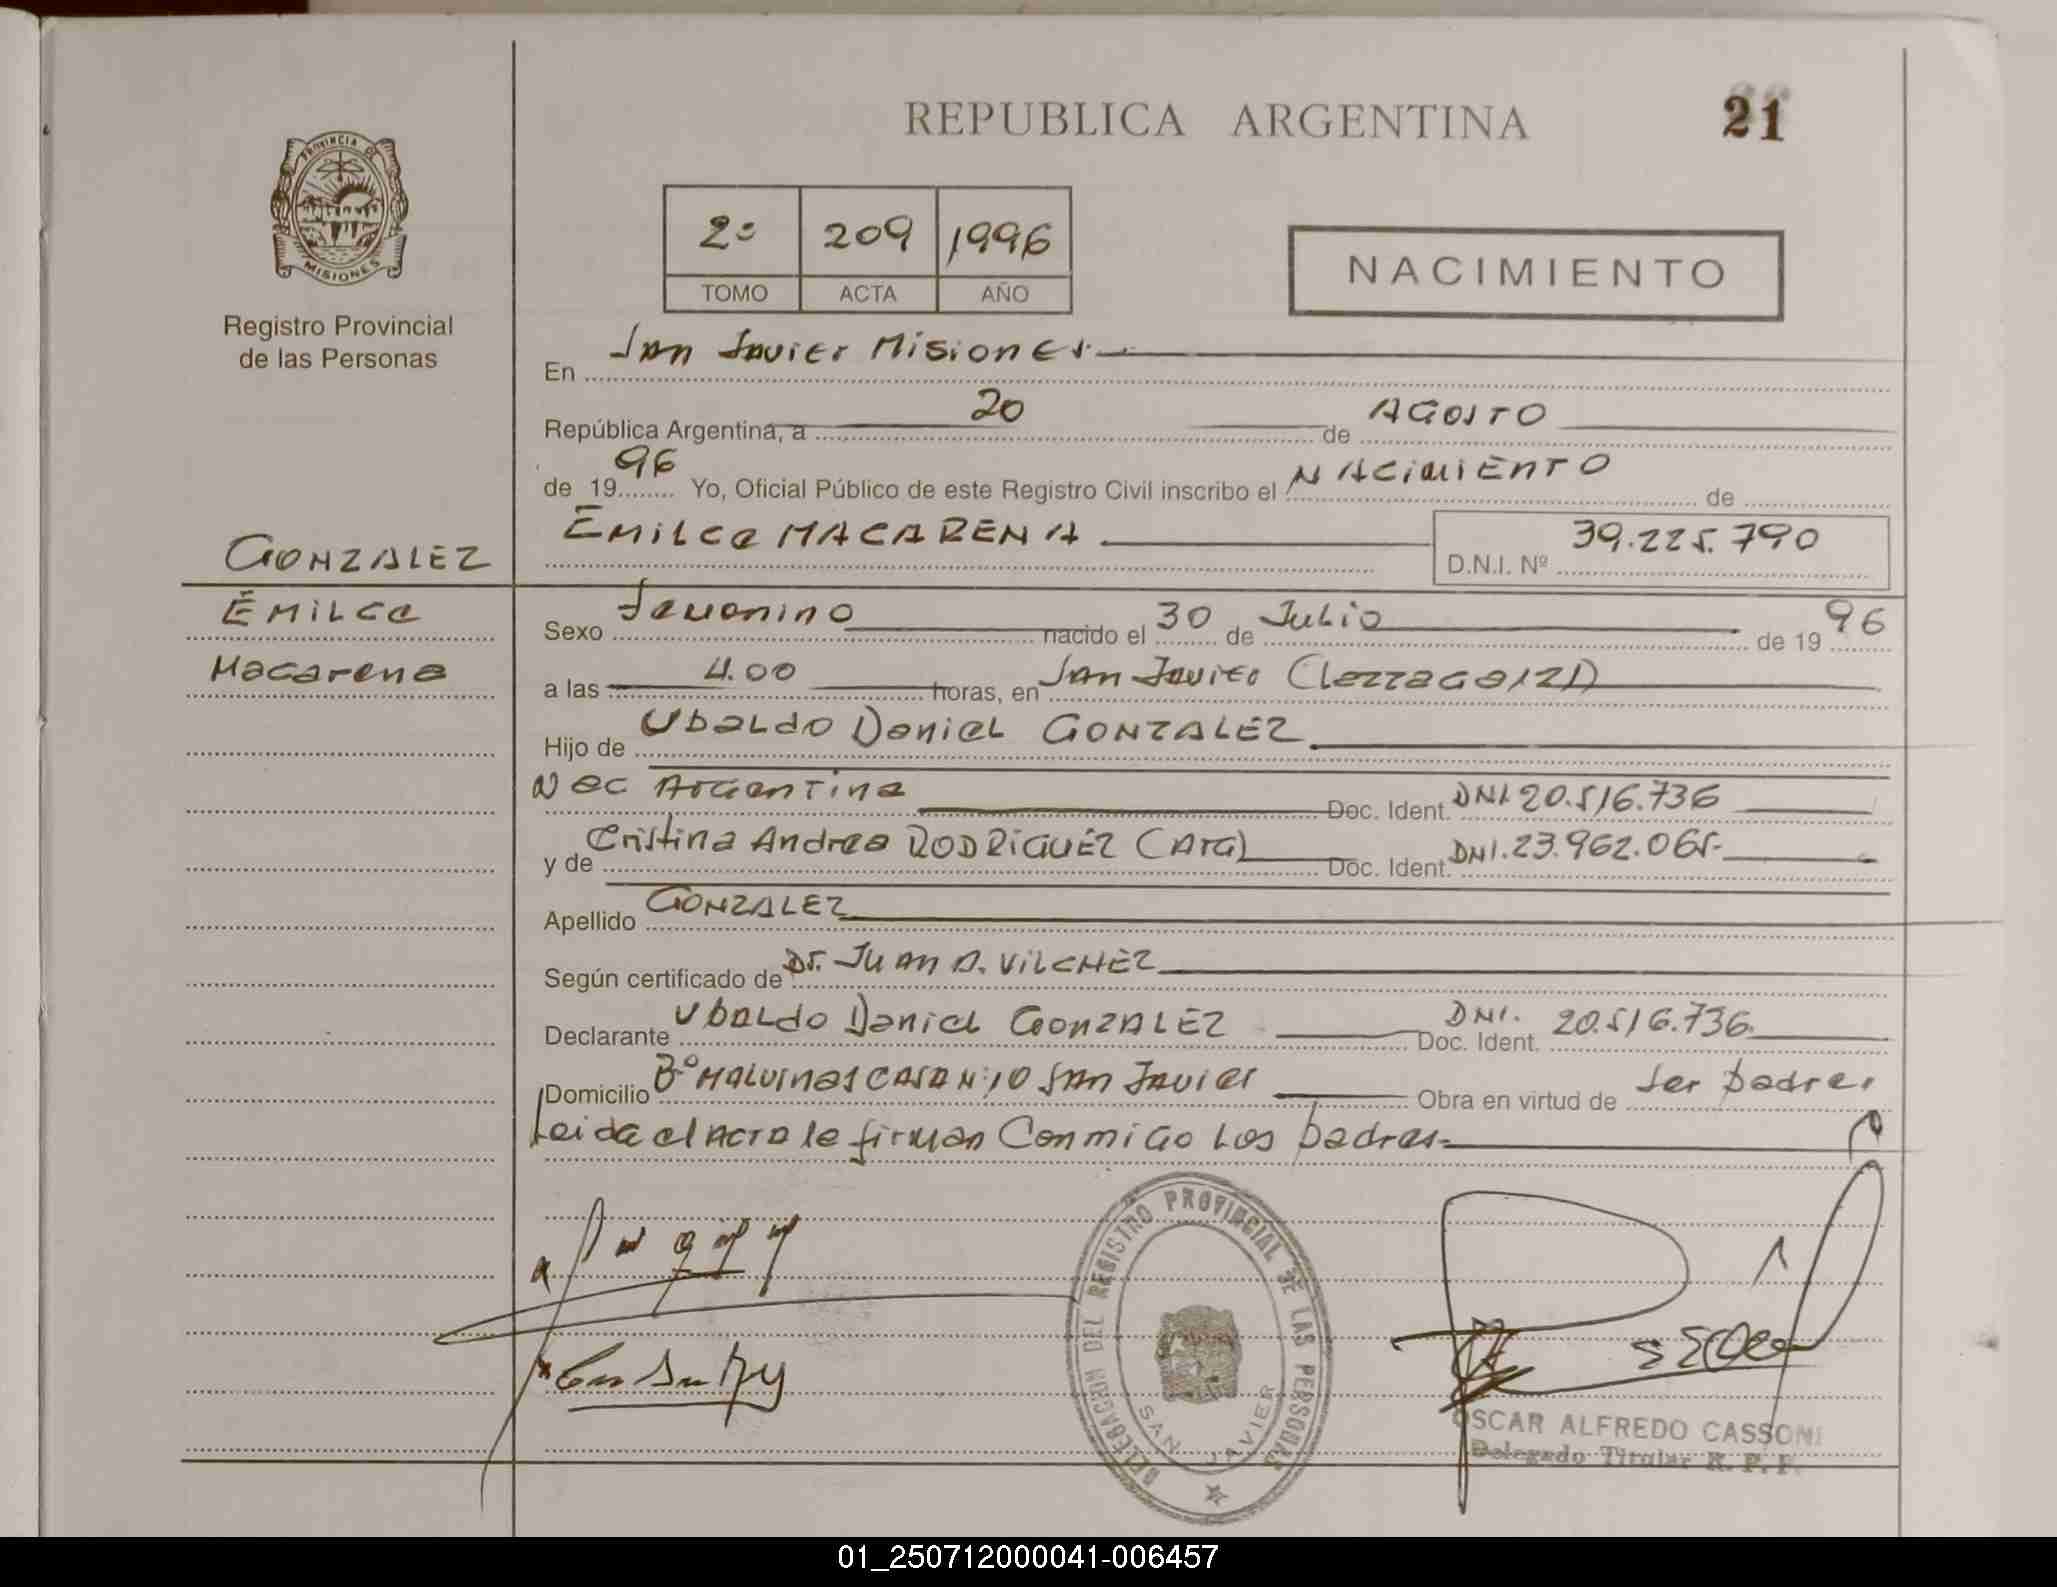 REPUBLICA ARGENTINA
21
PROVINCIA DE
MISIONES
Registro Provincial
de las Personas
2º 209 1996
TOMO ACTA AÑO
NACIMIENTO
En San Javier Misiones
República Argentina, a 20 de AGOSTO
de 1996 Yo, Oficial Público de este Registro Civil inscribo el NACIMIENTO de
EMILCE MACARENA D.N.I. Nº 39.225.790
GONZALEZ
EMILCE
Macarena
Sexo Femenino nacido el 30 de Julio de 1996
a las 4.00 horas, en San Javier
Hijo de Ubaldo Daniel GONZALEZ
Nac Argentina Doc. Ident. DNI 20.516.736
y de Cristina Andrea RODRIGUEZ (ARG) Doc. Ident. DNI. 23.962.065.
Apellido GONZALEZ
Según certificado de Dr. JUAN A. VILCHEZ
Declarante Ubaldo Daniel GONZALEZ Doc. Ident. DNI. 20.516.736.
Domicilio Bº MALVINAS CASA Nº 10 San Javier Obra en virtud de ser padre.
Leida el ACTA le firman Conmigo Los padres.
DELEGACION DEL REGISTRO PROVINCIAL DE LAS PERSONAS
SAN JAVIER
OSCAR ALFREDO CASSONI
Delegado Titular R. P. P.
01_250712000041-006457